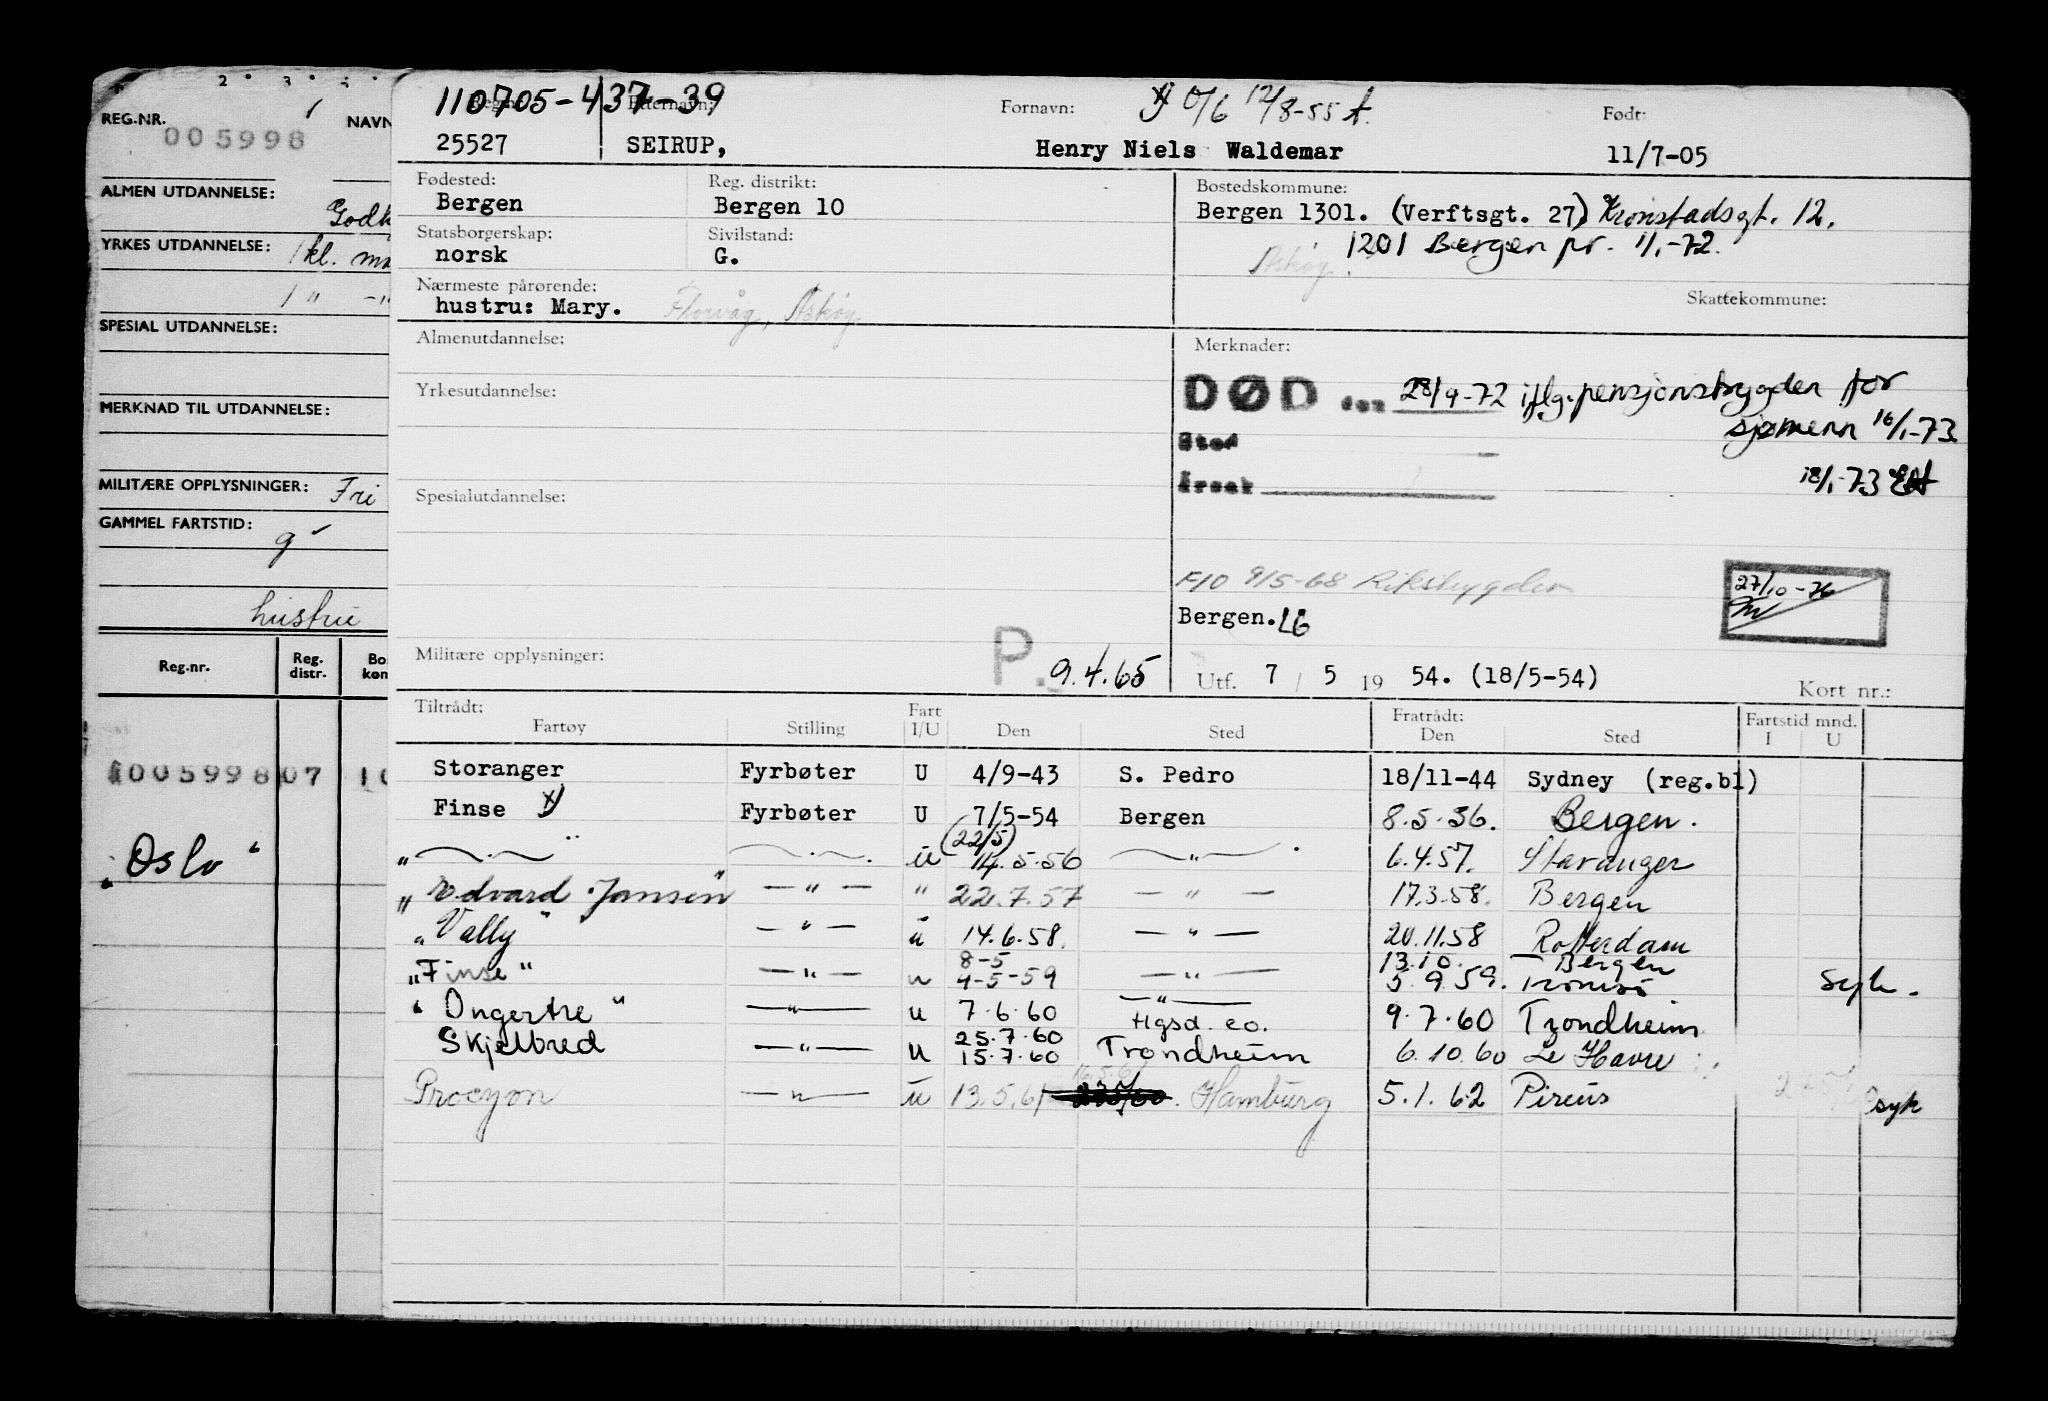 2 3
REG.NR. 005998 NAVN
ALMEN UTDANNELSE: Godk
YRKES UTDANNELSE: 1 kl. ma
1 " -"
SPESIAL UTDANNELSE:
MERKNAD TIL UTDANNELSE:
MILITÆRE OPPLYSNINGER: Fri
GAMMEL FARTSTID:
hustru
Reg.nr. Reg. distr. Bo kon
005998 07 10
"Oslo"
110705-437-39
Etternavn: Fornavn: 12/8-55 Født:
25527 SEIRUP, Henry Niels Waldemar 11/7-05
Fødested: Reg. distrikt: Bostedskommune:
Bergen Bergen 10 Bergen 1301. (Verftsgt. 27) Kronstadsgt. 12.
Statsborgerskap: Sivilstand: 1201 Bergen pr. 1/1-72.
norsk G. Askøy.
Nærmeste pårørende: Skattekommune:
hustru: Mary. Florvåg, Askøy
Almenutdannelse: Merknader:
Yrkesutdannelse: DØD den 28/9-72 iflg. pensjonstrygden for
sjømenn 16/1-73
Sted
Årsak 18/1-73
Spesialutdannelse:
FIO 9/5-68 Rikstrygden
27/10-76
Bergen. LG
Militære opplysninger: P. 9.4.65 Utf. 7 / 5 19 54. (18/5-54) Kort nr.:
Tiltrådt: Fart Fratrådt: Fartstid mnd.
Fartøy Stilling I/U Den Sted Den Sted I U
Storanger Fyrbøter U 4/9-43 S. Pedro 18/11-44 Sydney (reg.bl)
Finse x) Fyrbøter U 7/5-54 Bergen 8.5.56. Bergen.
(22/5)
" — " — u 14.5.56 — " — 6.4.57. Stavanger
"Edvard Jansen" — " — " 22.7.57 — " — 17.3.58. Bergen
"Vally" — " — u 14.6.58. — " — 20.11.58 Rotterdam
8-5 13.10. Bergen
"Finse" — " — u 4-5-59 — " — 5.9.59. Tromsø syk.
"Ingertre" — " — u 7.6.60 — " — 9.7.60 Trondheim
25.7.60 Hgsd. eo.
Skjelbred — " — u 15.7.60 Trondheim 6.10.60 Le Havre
Procyon — " — u 13.5.61 Hamburg 5.1.62 Pireus syk